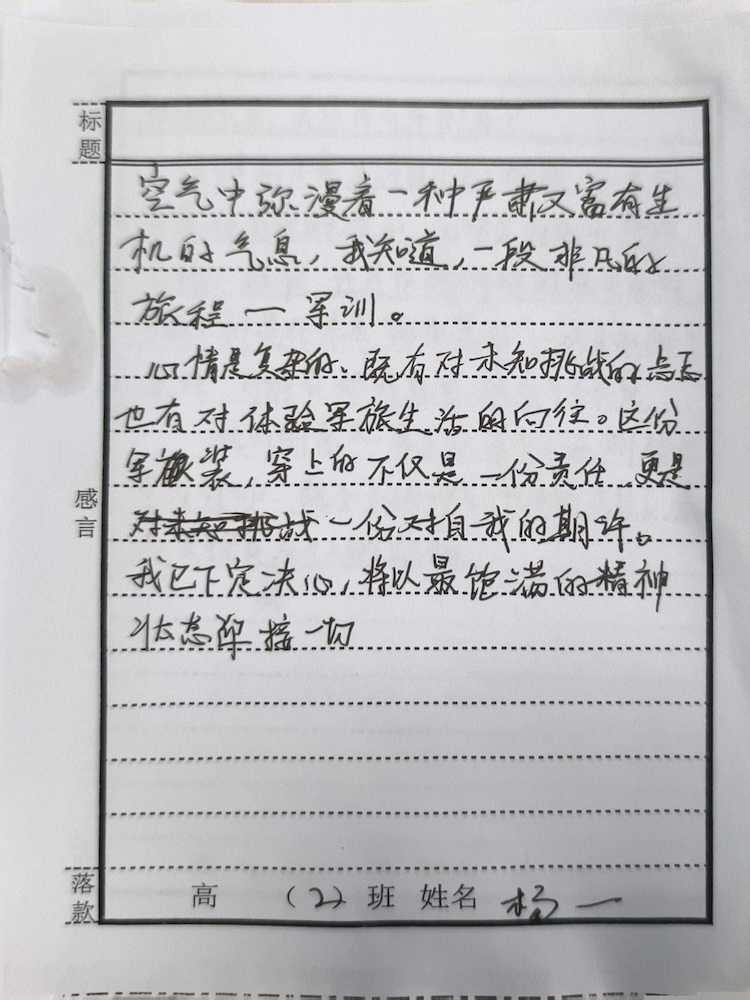 标题
空气中弥漫着一种严肃又富有生
机的气息，我知道，一段非凡的
旅程一军训。
心情是复杂的、既有对未知挑战的忐忑
也有对体验军旅生活的向往。这份
军装，穿上的不仅是一份责任，更是
对未知挑战一份对自我的期许。
我已下定决心，将以最饱满的精神
状态迎接一切
感言
落款
高 （2）班 姓名 杨一